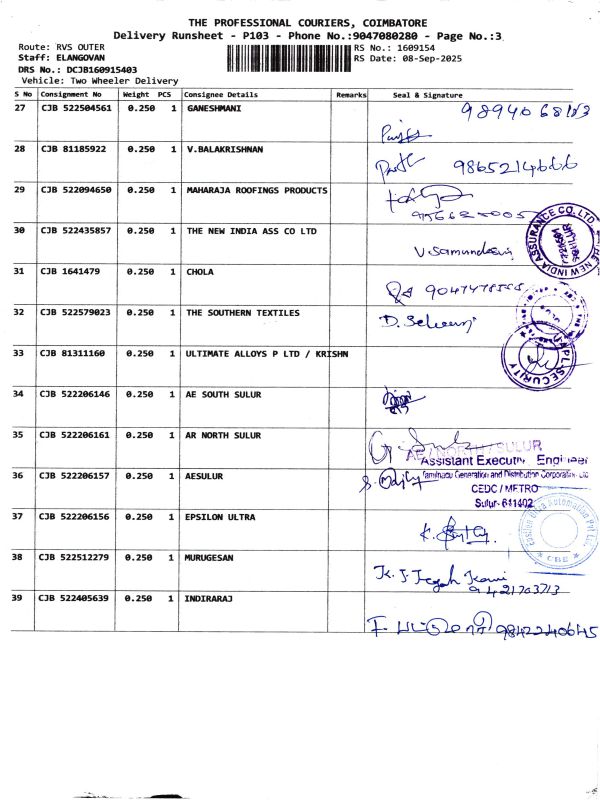 THE PROFESSIONAL COURIERS, COIMBATORE
Delivery Runsheet - P103 - Phone No.:9047080280 - Page No.:3
Route: RVS OUTER
RS No.: 1609154
Staff: ELANGOVAN
RS Date: 08-Sep-2025
DRS No.: DCJB160915403
Vehicle: Two Wheeler Delivery
S No Consignment No Weight PCS Consignee Details Remarks Seal & Signature
27 CJB 522504561 0.250 1 GANESHMANI
28 CJB 81185922 0.250 1 V.BALAKRISHNAN
29 CJB 522094650 0.250 1 MAHARAJA ROOFINGS PRODUCTS
30 CJB 522435857 0.250 1 THE NEW INDIA ASS CO LTD
31 CJB 1641479 0.250 1 CHOLA
32 CJB 522579023 0.250 1 THE SOUTHERN TEXTILES
33 CJB 81311160 0.250 1 ULTIMATE ALLOYS P LTD / KRISHN
34 CJB 522206146 0.250 1 AE SOUTH SULUR
35 CJB 522206161 0.250 1 AR NORTH SULUR
AE / NORTH / SULUR
Assistant Executiv Engineer
36 CJB 522206157 0.250 1 AESULUR
Tamilnadu Generation and Distribution Corporation Ltd
CEDC / METRO
Sulur- 641402
37 CJB 522206156 0.250 1 EPSILON ULTRA
38 CJB 522512279 0.250 1 MURUGESAN
39 CJB 522405639 0.250 1 INDIRARAJ
9842240645